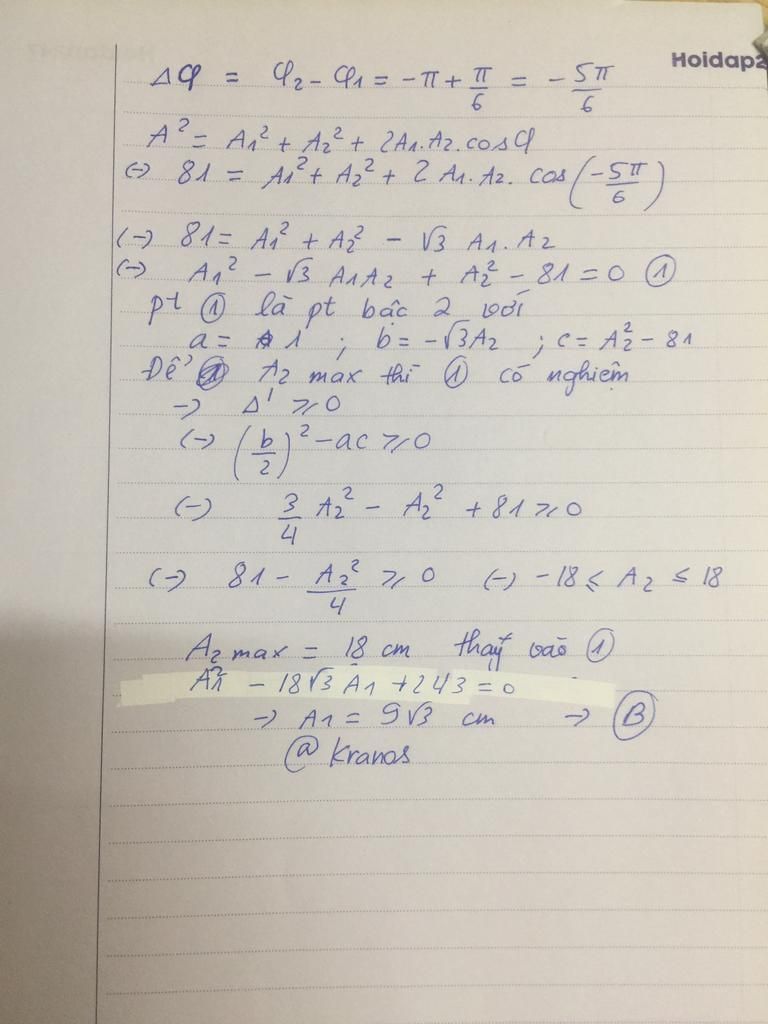 Hoidap2
Δφ = φ2 - φ1 = -π + π/6 = -5π/6
A² = A1² + A2² + 2A1.A2.cosφ
(-) 81 = A1² + A2² + 2 A1.A2. cos(-5π/6)
(-) 81 = A1² + A2² - √3 A1.A2
(-) A1² - √3 A1A2 + A2² - 81 = 0 ①
pt ① là pt bậc 2 với
a = 1 ; b = -√3A2 ; c = A2² - 81
Để A2 max thì ① có nghiệm
-> Δ' ≥ 0
(-) (b/2)² - ac ≥ 0
(-) 3/4 A2² - A2² + 81 ≥ 0
(-) 81 - A2²/4 ≥ 0 (-) -18 ≤ A2 ≤ 18
A2 max = 18 cm thaÿ vào ①
A1² - 18√3 A1 + 243 = 0
-> A1 = 9√3 cm -> Ⓑ
@ Kranos